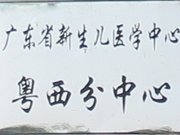 广东省新生儿医学中心
粤西分中心